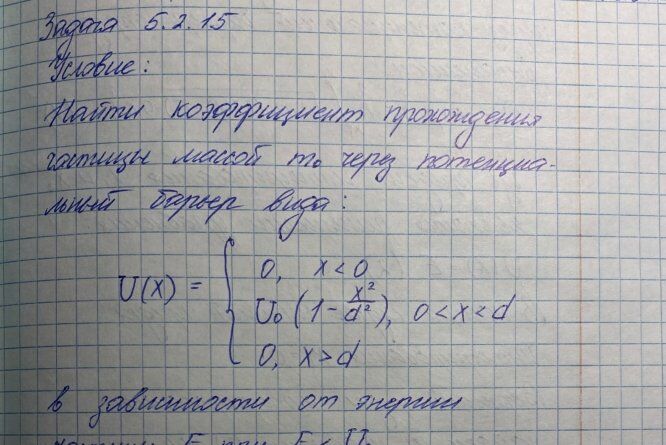 Задача 5.2.15
Условие:
Найти коэффициент прохождения
частицы массой m₀ через потенциа-
льный барьер вида:
U(x) = { 0, x < 0
U₀ (1 - x²/d²), 0 < x < d
0, x > d
в зависимости от энергии
E при E < U₀